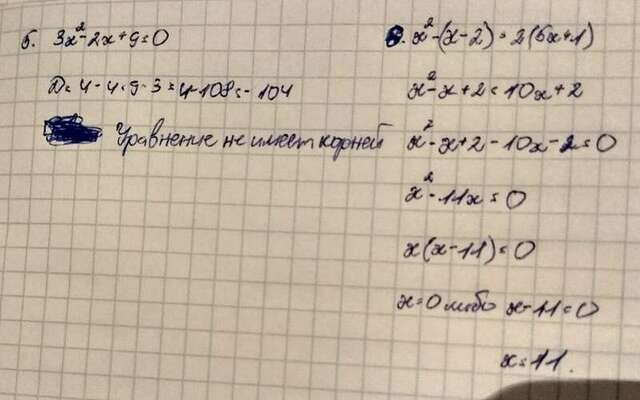 5. 3x²-2x+9=0
D=4-4·9·3=4-108=-104
Уравнение не имеет корней
6. x²-(x-2)=2(5x+1)
x²-x+2=10x+2
x²-x+2-10x-2=0
x²-11x=0
x(x-11)=0
x=0 либо x-11=0
x=11.